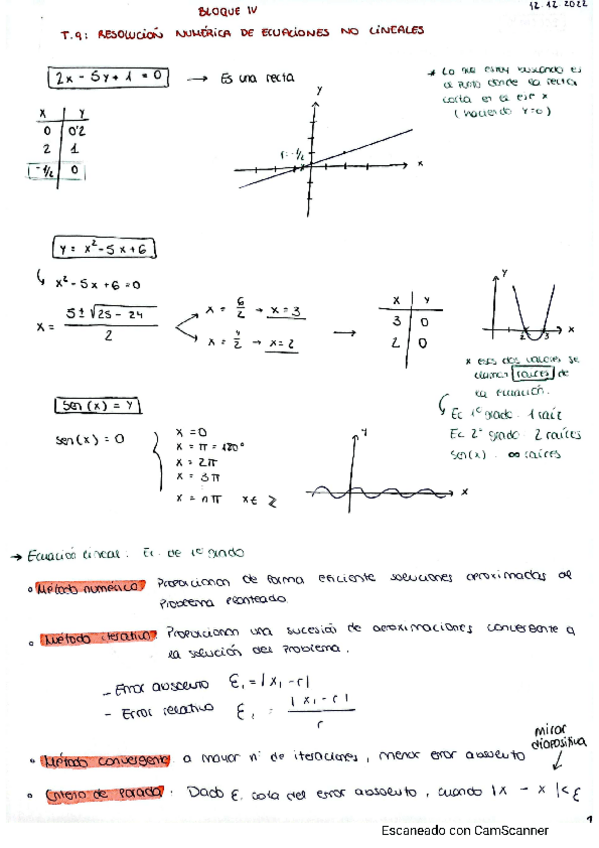 BLOQUE IV
12.12.2022
T.9: RESOLUCIÓN NUMÉRICA DE ECUACIONES NO LINEALES
2x - 5y + 1 = 0 → Es una recta
* Lo que estoy buscando es
el punto donde la recta
corta en el eje x
(haciendo Y=0)
X Y
0 0'2
2 1
-1/2 0
y
r=-1/2
x
y = x² - 5x + 6
x² - 5x + 6 = 0
x = 5 ± √25 - 24 / 2
x = 6/2 → x = 3
x = 4/2 → x = 2
X Y
3 0
2 0
Y
2 3 x
* esos dos valores se
llaman raíces de
la ecuación.
Ec 1º grado. 1 raíz
Ec 2º grado. 2 raíces
Sen(x). ∞ raíces
Sen (x) = Y
Sen(x) = 0
x = 0
x = π = 180°
x = 2π
x = 3π
x = nπ x ∈ Z
Y
x
→ Ecuación lineal: Ec. de 1º grado
Método numérico: Proporcionan de forma eficiente soluciones aproximadas al
problema planteado.
Método iterativo: Proporcionan una sucesión de aproximaciones convergente a
la solución del problema.
- Error absoluto ε₁ = |x₁ - r|
- Error relativo ε₁ = |x₁ - r| / r
mirar
diapositiva
Método convergente: a mayor nº de iteraciones, menor error absoluto
Criterio de Parada: Dado ε cota del error absoluto, cuando |x - x| < ε
1
Escaneado con CamScanner